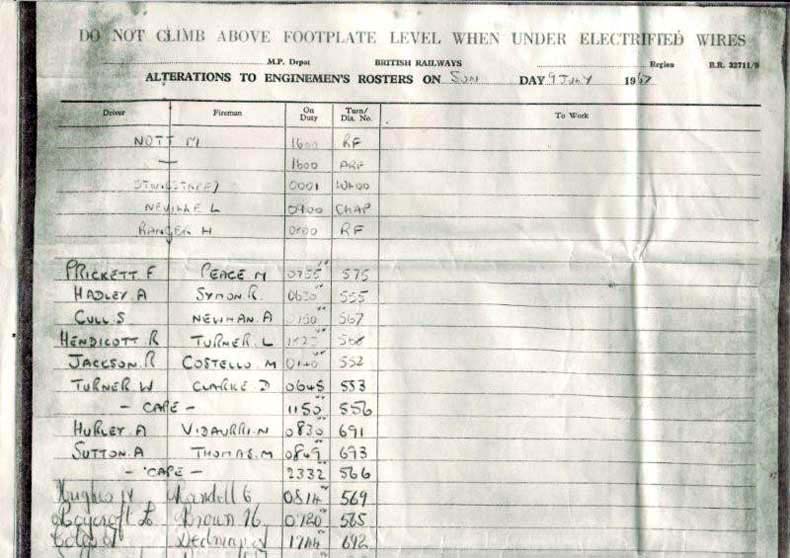 DO NOT CLIMB ABOVE FOOTPLATE LEVEL WHEN UNDER ELECTRIFIED WIRES
M.P. Depot BRITISH RAILWAYS Region B.R. 32711/9
ALTERATIONS TO ENGINEMEN'S ROSTERS ON SUN DAY 9 JULY 1967
Driver Fireman On Duty Turn/ Dia. No. To Work
NOTT M 1600 RF
1600 PRF
0001
NEVILLE L 0900 CHAP
RANGER H RF
PRICKETT F PEACE M 0755 575
HADLEY. A SYMON. R. 0630 555
CULL S NEWMAN. A 567
HENDICOTT R TURNER. L 568
JACKSON. R COSTELLO M 0140 552
TURNER W CLARKE D 0645 553
- CAPE - 1150 556
HURLEY. A VIDAURRI. N 0830 691
SUTTON. A THOMAS. M 0849 693
- CAPE - 2332 566
Hughes Randell 0814 569
Roycroft Brown 565
Coles Dedman 1744 692